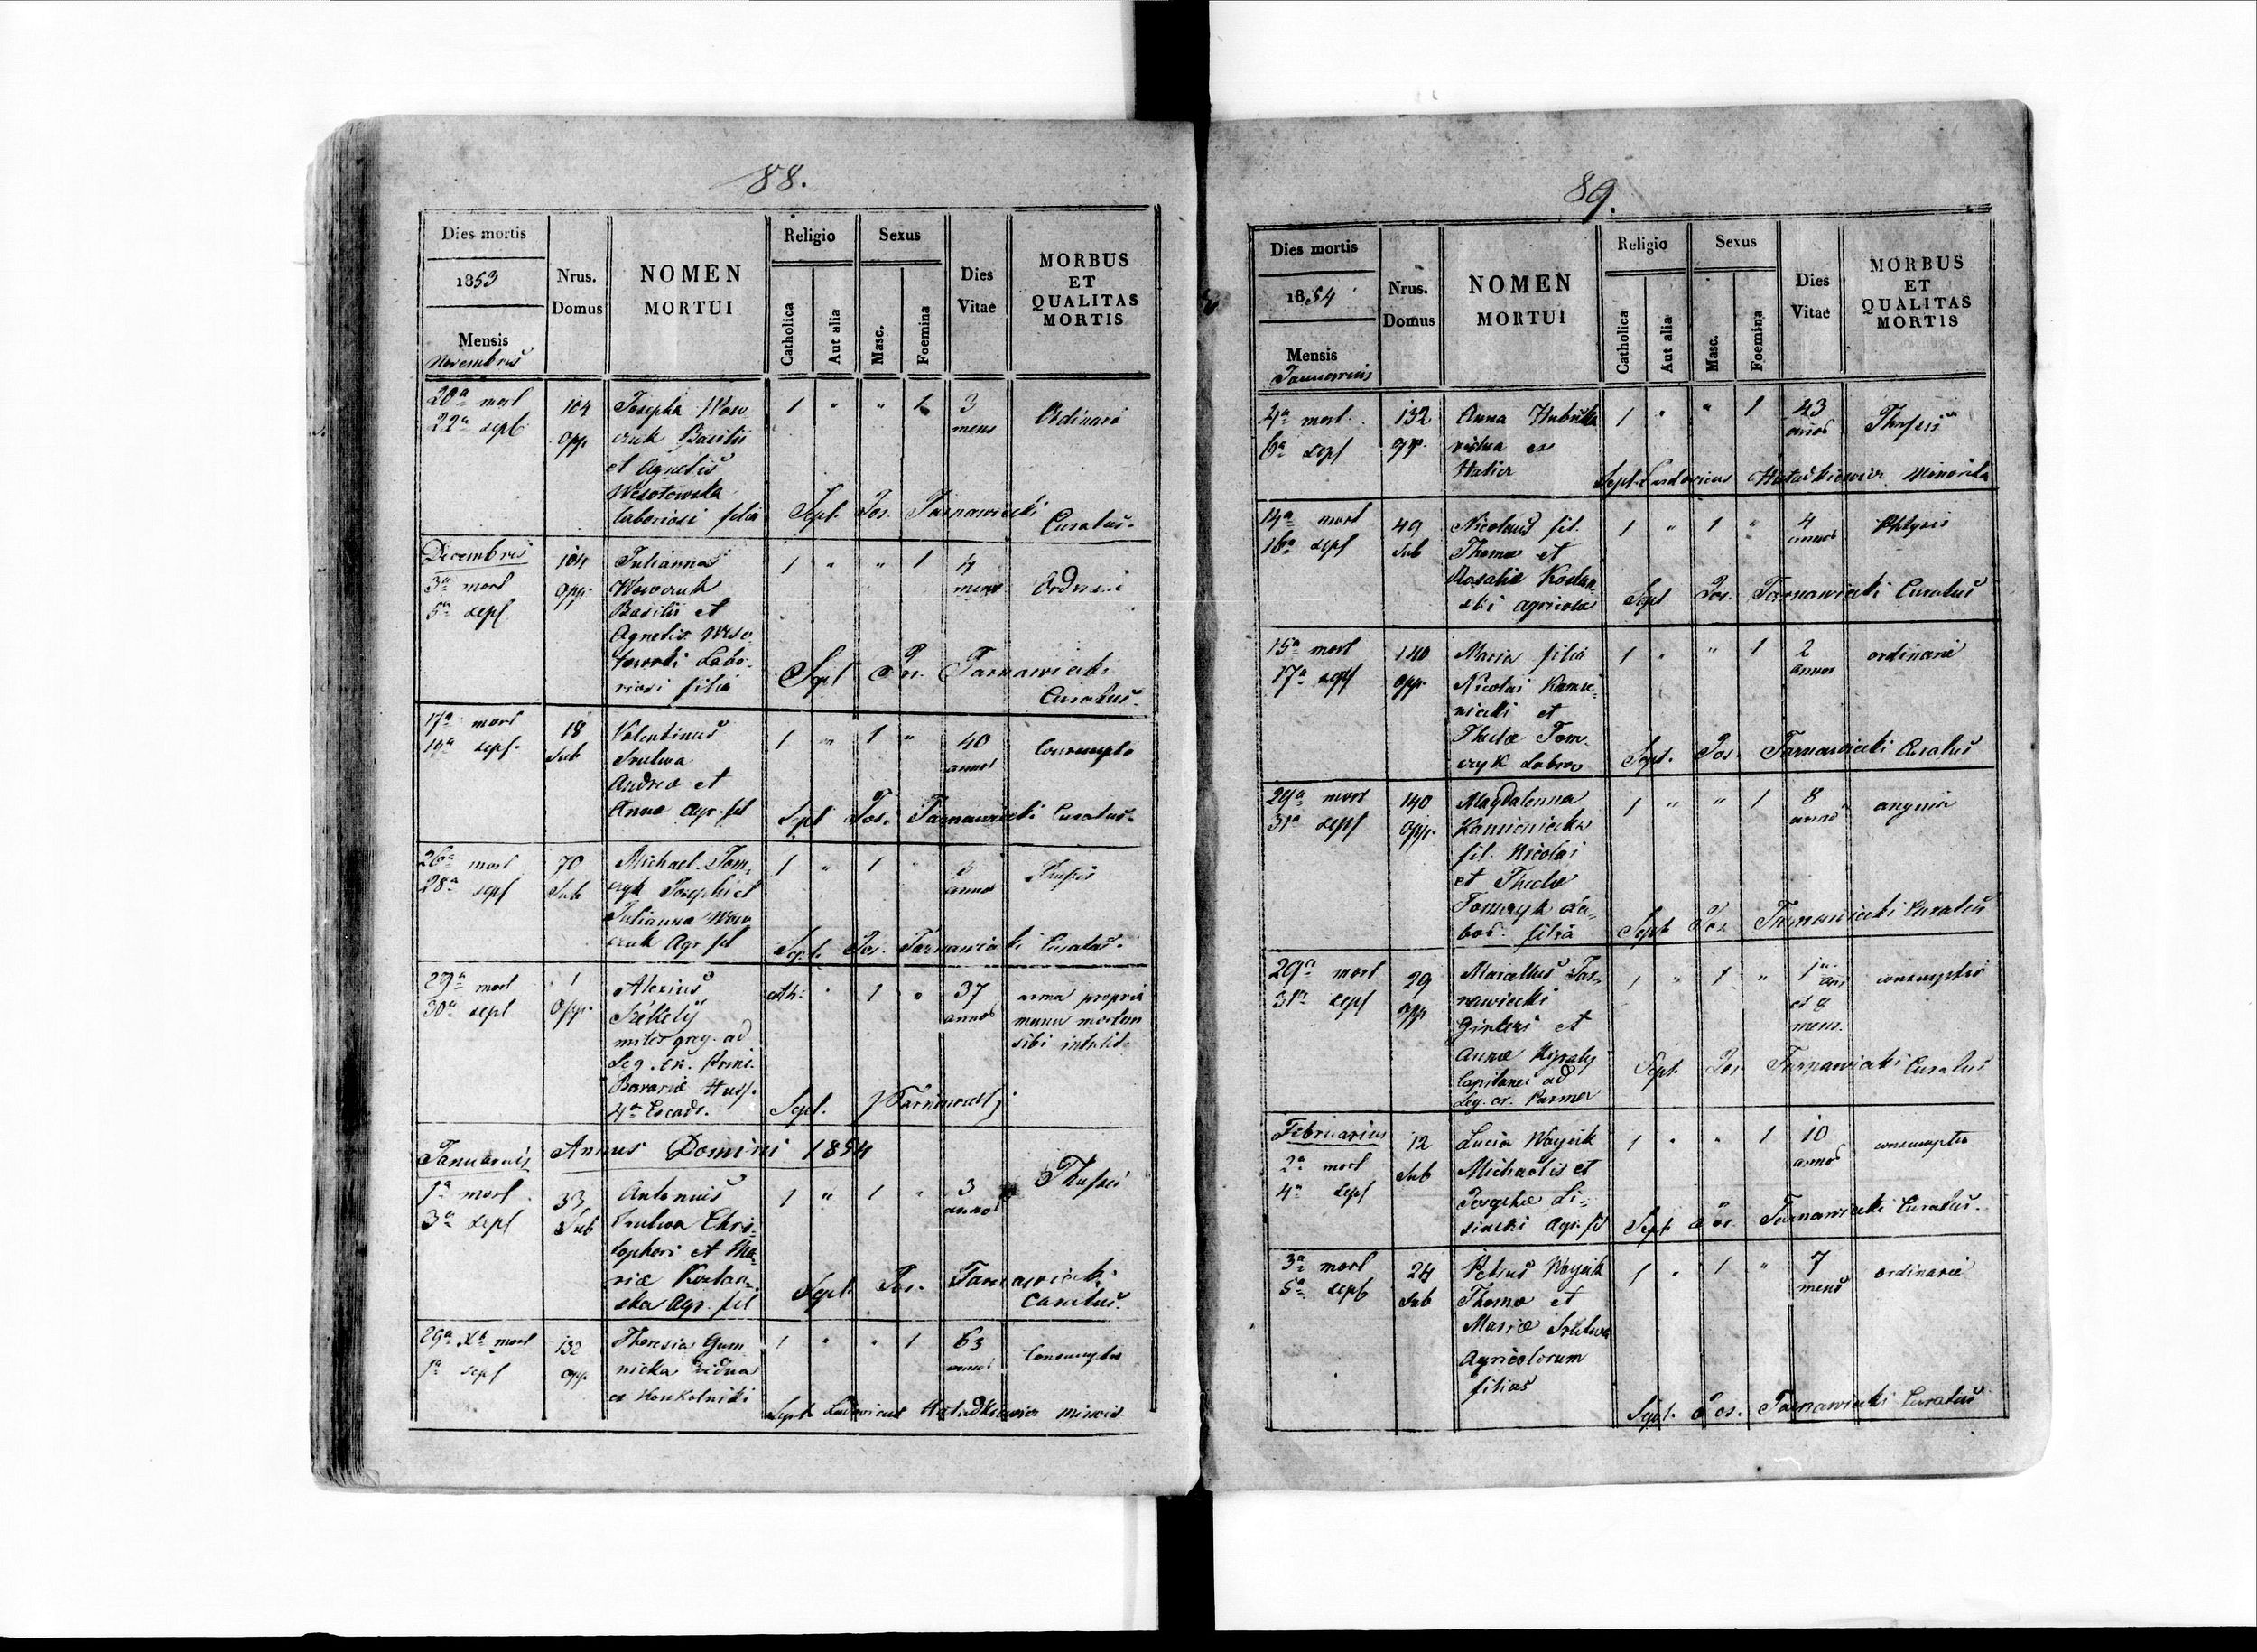 88.
Dies mortis
1853
Mensis
Novembris
Nrus.
Domus
NOMEN
MORTUI
Religio
Catholica
Aut alia
Sexus
Masc.
Foemina
Dies
Vitae
MORBUS
ET
QUALITAS
MORTIS
20a mort
22a sept
104
opp.
Josepha Wow-
czuk Basilii
et Agnetis
Wesołowska
laboriosi filia
1 " " 1
3
mens
Ordinaria
Sept. Jos. Tarnawiecki
Curatus.
Decembris
3a mort
5a sept
104
opp.
Julianna
Wowczuk
Basilii et
Agnetis Weso-
łowski Labo-
riosi filia
1 " " 1
4
mens
Sept Jos. Tarnawiecki
Curatus.
17a mort
19a sept.
18
Sub
Valentinus
Andreæ et
Annæ Agr. fil
1 " 1 "
40
annos
Consumptio
Sept Jos. Tarnawiecki Curatus.
26a mort
28a sept
70
Sub
Michael Tom-
czyk Josephi et
Julianna Wow-
czuk Agr. fil
1 " 1 "
annos
Sept. Jos. Tarnawiecki Curatus.
29a mort
30a sept
1
opp.
Alexius
Székely
miles greg. ad
Leg. Prin.
Bavariæ Huss.
4a Escadr.
cath. " 1 "
37
annos
arma propria
manu mortem
sibi intulit.
Sept. Tarnawiecki
Januarius Annus Domini 1854
1a mort.
3a sept
33
Sub
Antonius
Chris-
tophori et Ma-
riæ Kozłan-
ska Agr. fil
1 " 1 "
3
annos
Sept. Jos. Tarnawiecki
Curatus.
29a Xb mort
1a sept
132
opp.
Theresia Gum-
nicka vidua
1 " " 1
63
annos
Consumptio
Sept. Ludovicus
89.
Dies mortis
1854
Mensis
Januarius
Nrus.
Domus
NOMEN
MORTUI
Religio
Catholica
Aut alia
Sexus
Masc.
Foemina
Dies
Vitae
MORBUS
ET
QUALITAS
MORTIS
4a mort.
6a sept
132
opp.
Anna
vidua ex
1 " " 1
43
annos
Sept. Ludovicus Minorita
14a mort
16a sept
49
Sub
Nicolaus fil.
Thomæ et
Rosaliæ Kozłan-
ski agricolæ
1 " 1 "
4
annos
Phtysis
Sept Jos. Tarnawiecki Curatus
15a mort
17a sept
140
opp.
Maria filia
Nicolai Kamie-
niecki et
Theclæ Tom-
czyk Labor
1 " " 1
2
annos
ordinaria
Sept. Jos. Tarnawiecki Curatus
29a mort
31a sept
140
opp.
Magdalenna
Kamieniecka
fil. Nicolai
et Theclæ
Tomczyk La-
bor. filia
1 " " 1
8
annos
angina
Sept Jos. Tarnawiecki Curatus
29a mort
31a sept
29
opp
Marcellus Tar-
nawiecki
et
Annæ
Capitanei ad
Leg. Parma
1 " 1 "
1
an
et 9
mens.
consumptio
Sept. Jos. Tarnawiecki Curatus
Februarius
2a mort
4a sept
12
Sub
Lucia Woycik
Michaelis et
Li-
siecki Agr. fil
1 " " 1
10
annos
consumptio
Sept Jos. Tarnawiecki Curatus.
3a mort
5a sept
24
Sub
Petrus Woycik
Thomæ et
Mariæ
Agricolorum
filius
1 " 1 "
7
mens
ordinaria
Sept. Jos. Tarnawiecki Curatus